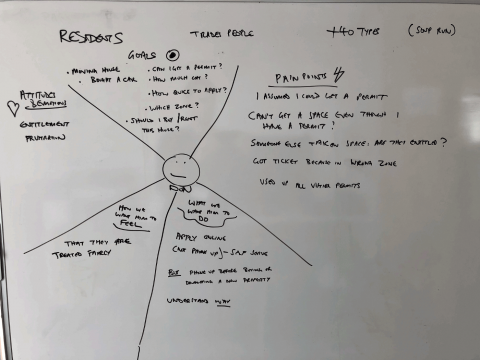 RESIDENTS
TRADES PEOPLE
+40 TYPES
(SOUP RUN)
GOALS
• MOVING HOUSE
• BOUGHT A CAR
• CAN I GET A PERMIT?
• HOW MUCH COST?
• HOW QUICK TO APPLY?
• WHICH ZONE?
• SHOULD I BUY/RENT
THIS HOUSE?
ATTITUDES
& EMOTIONS
ENTITLEMENT
FRUSTRATION
PAIN POINTS
I ASSUMED I COULD GET A PERMIT
CAN'T GET A SPACE EVEN THOUGH I
HAVE A PERMIT!
SOMEONE ELSE TAKEN SPACE: ARE THEY ENTITLED?
GOT TICKET BECAUSE IN WRONG ZONE
USED UP ALL VISITOR PERMITS
HOW WE
WANT HIM TO
FEEL
THAT THEY ARE
TREATED FAIRLY
WHAT WE
WANT HIM TO
DO
APPLY ONLINE
(NOT PHONE UP) - SELF SERVE
BUT PHONE UP BEFORE BUYING OR
DEVELOPING A NEW PROPERTY
UNDERSTAND WHY